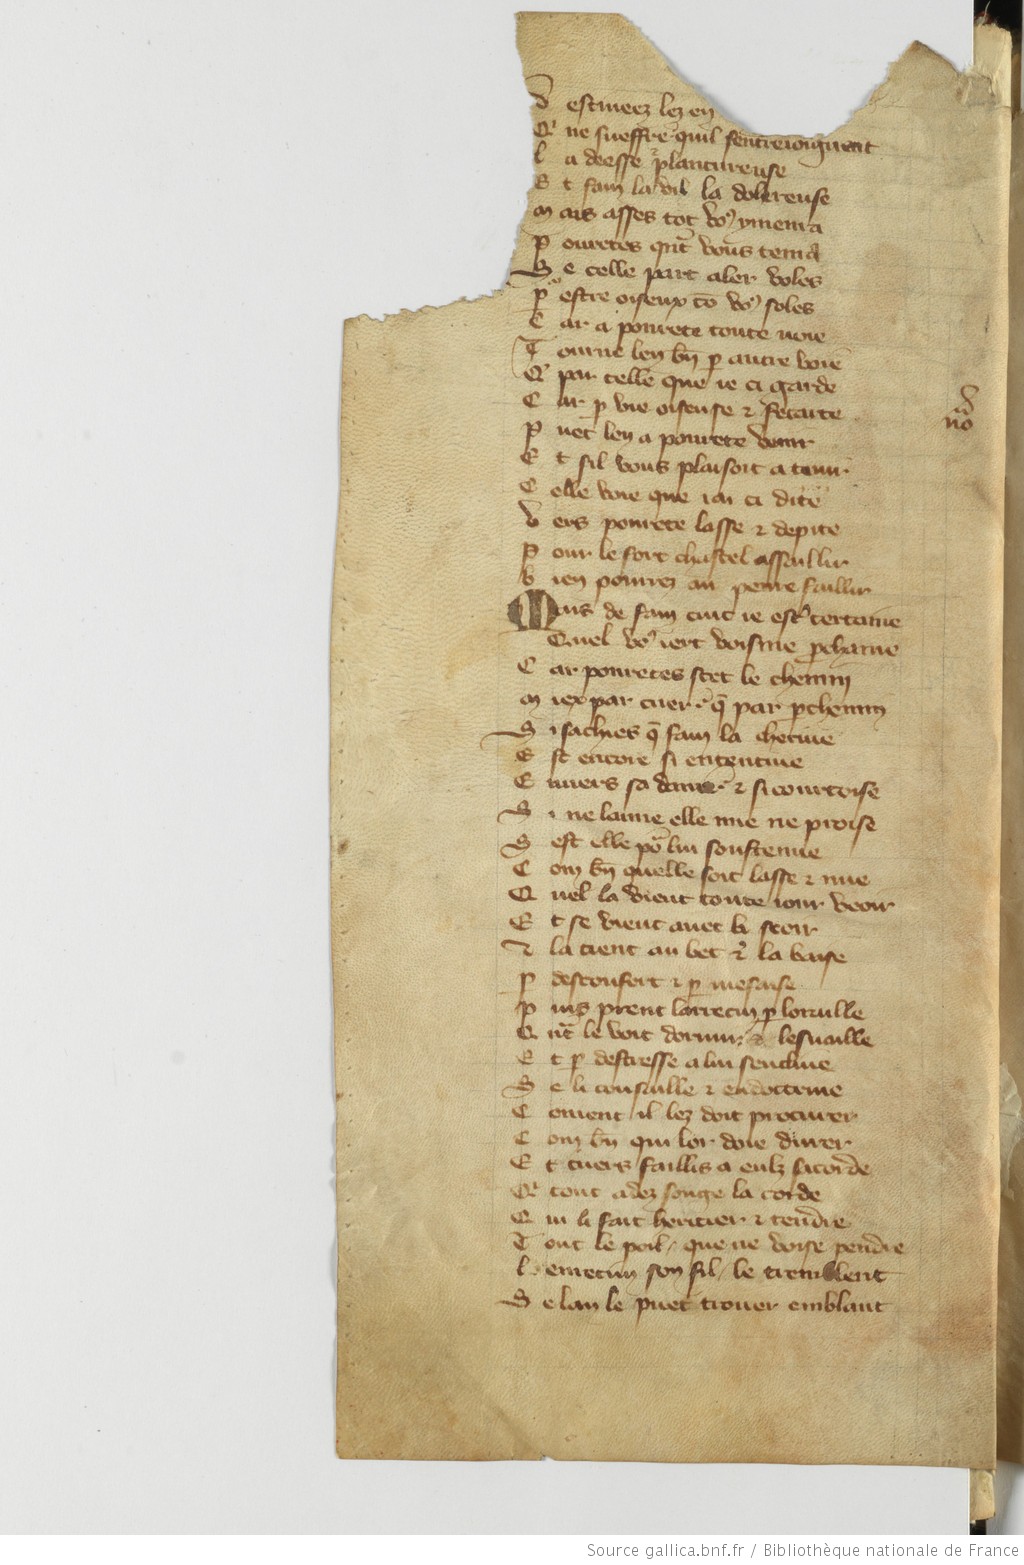 D estineez lez en
Q' ne sueffre quil sentreioignent
l a deesse plantureuse
E t fain la vil la dolereuse
M ais asses tot vo9 ymenra
P ouretes qnt vous tenra
S e celle part aler voles
P estre oiseux co vo9 soles
C ar a pourete toute uoie
T ourne len bn p autre voie
Q' par celle que ie ci garde
C ar p vie oiseuse ⁊ fetarte
P uet len a pourete venir
E t sil vous plaisoit a tenir
C elle voie que iai ci dite
V ers pourete lasse ⁊ depite
P our le fort chastel assaillir
B ien pourrez au penre faillir
Mais de fain cuit ie estre certaine
Quel vo9 iert voisine pchaine
C ar pouretes scet le chemin
M iex par cuer q par pchemin
S i sachies q fain la chetiue
E st encore si ententiue
E nuers sa dame ⁊ si courtoise
S i ne laime elle nue ne proise
S est elle por lui soustenue
C om bn quelle soit lasse ⁊ nue
Q uel la vient toute iour veoir
E t se vient auec li seoir
⁊ la tient au bec ⁊ la baise
P desconfort ⁊ p mesaise
P uis prent larrecin p loraille
Q nt le voit dormir ⁊ lesuaille
E t p destresse a lui sencline
S e li consaille ⁊ endoctrine
C oment il lez doit procurer
C om bn qui lor doie durer
E t cuers faillis a eulz sacorde
Q' tout adez songe la corde
Q ui li fait hericier ⁊ tendre
T out le poil / que ne voise pendre
L arrecin son fil / le tremblent
S e lan le puet trouer emblant
no
Source gallica.bnf.fr / Bibliothèque nationale de France